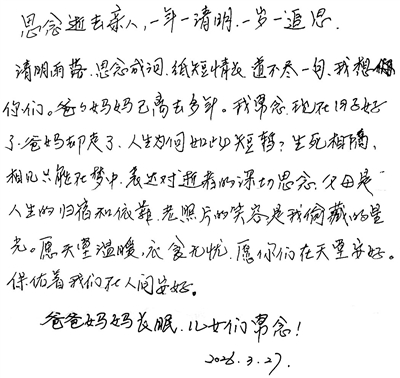 思念逝去亲人,一年一清明.一岁一追思.
清明雨落.思念成词.纸短情长 道不尽一句.我想
你们。爸爸妈妈已离去多年。我常念.现在日子好
了.爸妈却走了.人生为何如此短暂?生死相隔,
相见只能在梦中.表达对逝者的深切思念.父母是
人生的归宿和依靠.老照片的笑容是我偷藏的星
光。愿天堂温暖,衣食无忧.愿你们在天堂安好。
保佑着我们在人间安好。
爸爸妈妈长眠.儿女们常念!
2026.3.27.